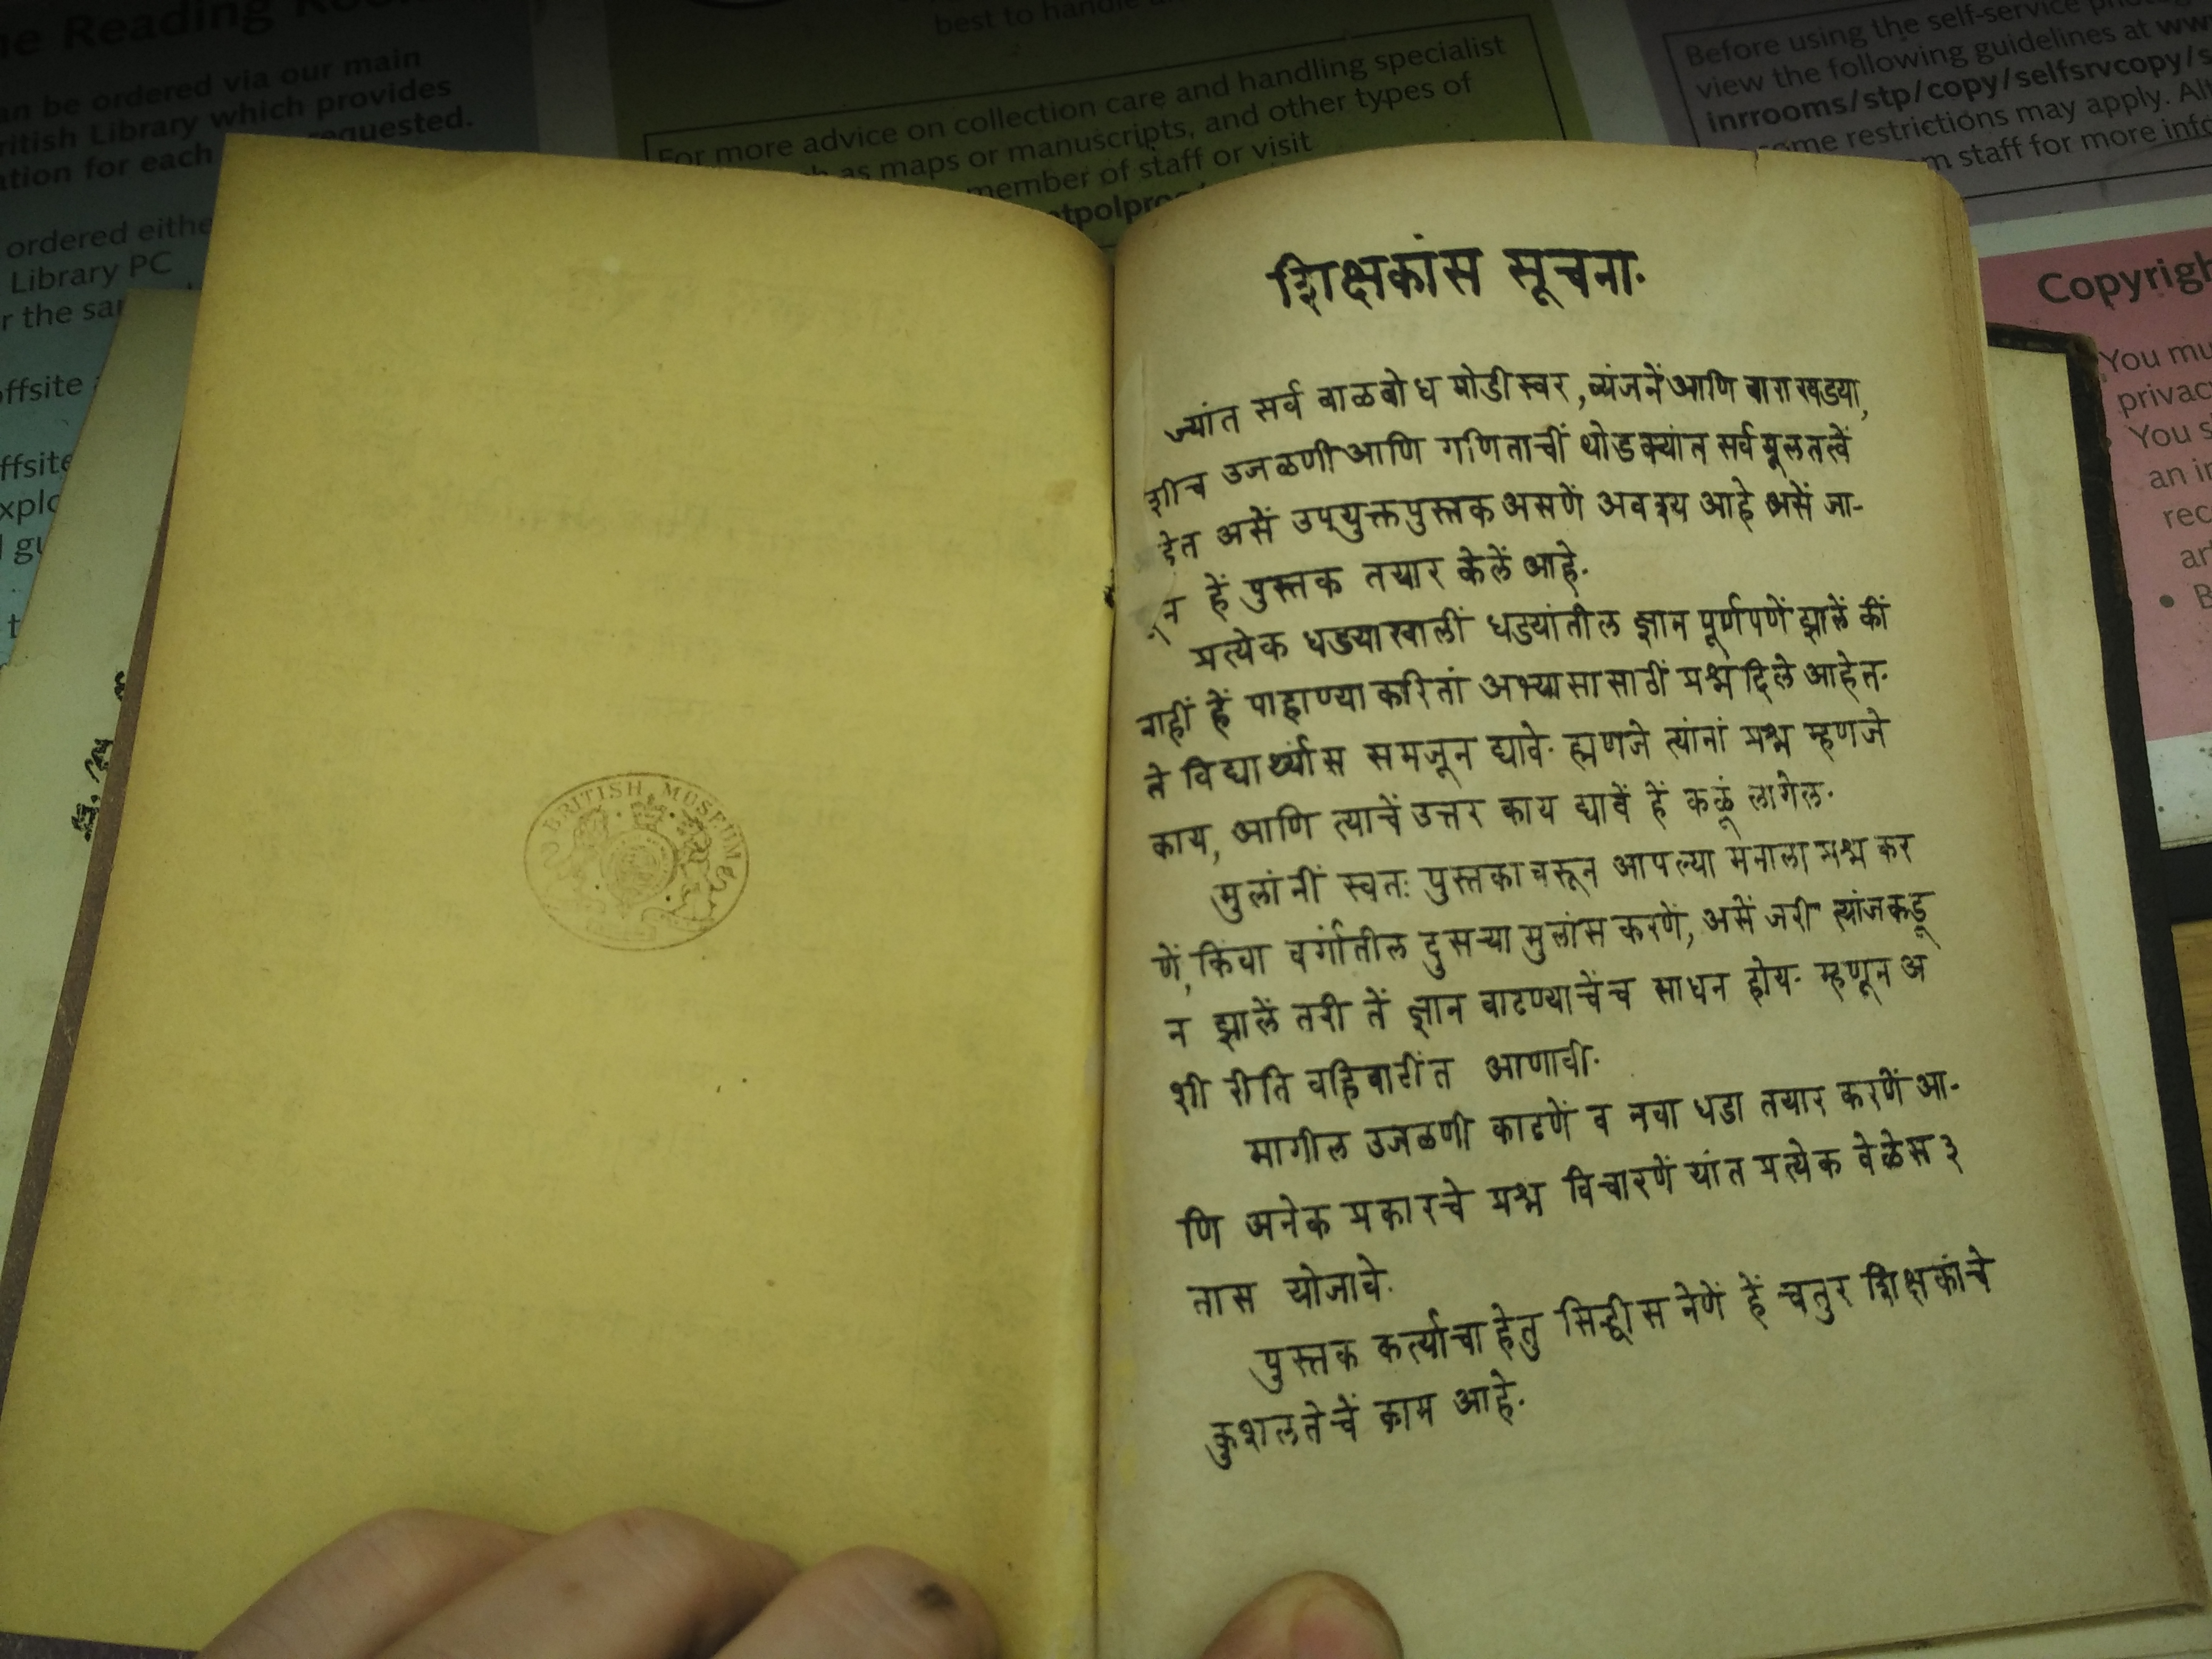 ne Reading
an be ordered via our main
ritish Library which provides
ation for each
requested.
ordered eithe
Library PC
r the sar
offsite
ffsite
explo
best to handle
For more advice on collection care and handling specialist
as maps or manuscripts, and other types of
member of staff or visit
Before using the self-service
view the following guidelines at ww
inrrooms/stp/copy/selfsrvcopy/s
ome restrictions may apply. Al
m staff for more info
Copyrigh
You mu
privac
You s
an i
rec
BRITISH MUSEUM
शिक्षकांस सूचना.
ज्यांत सर्व बाळबोध मोडी स्वर, व्यंजनें आणि बाराखड्या,
शीच उजळणी आणि गणिताचीं थोडक्यांत सर्व मूलतत्वें
हेत असें उपयुक्त पुस्तक असणें अवश्य आहे असें जा-
न हें पुस्तक तयार केलें आहे.
प्रत्येक धड्याखालीं धड्यांतील ज्ञान पूर्णपणें झालें कीं
नाहीं हें पाहाण्याकरितां अभ्यासासाठीं प्रश्न दिले आहेत.
ते विद्यार्थ्यांस समजून द्यावे. ह्मणजे त्यांनां प्रश्न म्हणजे
काय, आणि त्याचें उत्तर काय द्यावें हें कळूं लागेल.
मुलांनीं स्वतः पुस्तकावरून आपल्या मनाला प्रश्न कर
णें, किंवा वर्गातील दुसऱ्या मुलांस करणें, असें जरी त्यांजकडू
न झालें तरी तें ज्ञान वाढण्याचेंच साधन होय. म्हणून अ
शी रीति वहिवाटींत आणावी.
मागील उजळणी काढणें व नवा धडा तयार करणें आ-
णि अनेक प्रकारचे प्रश्न विचारणें यांत प्रत्येक वेळेस ३
तास योजावे.
पुस्तक कर्त्याचा हेतु सिद्धीस नेणें हें चतुर शिक्षकांचे
कुशलतेचें काम आहे.